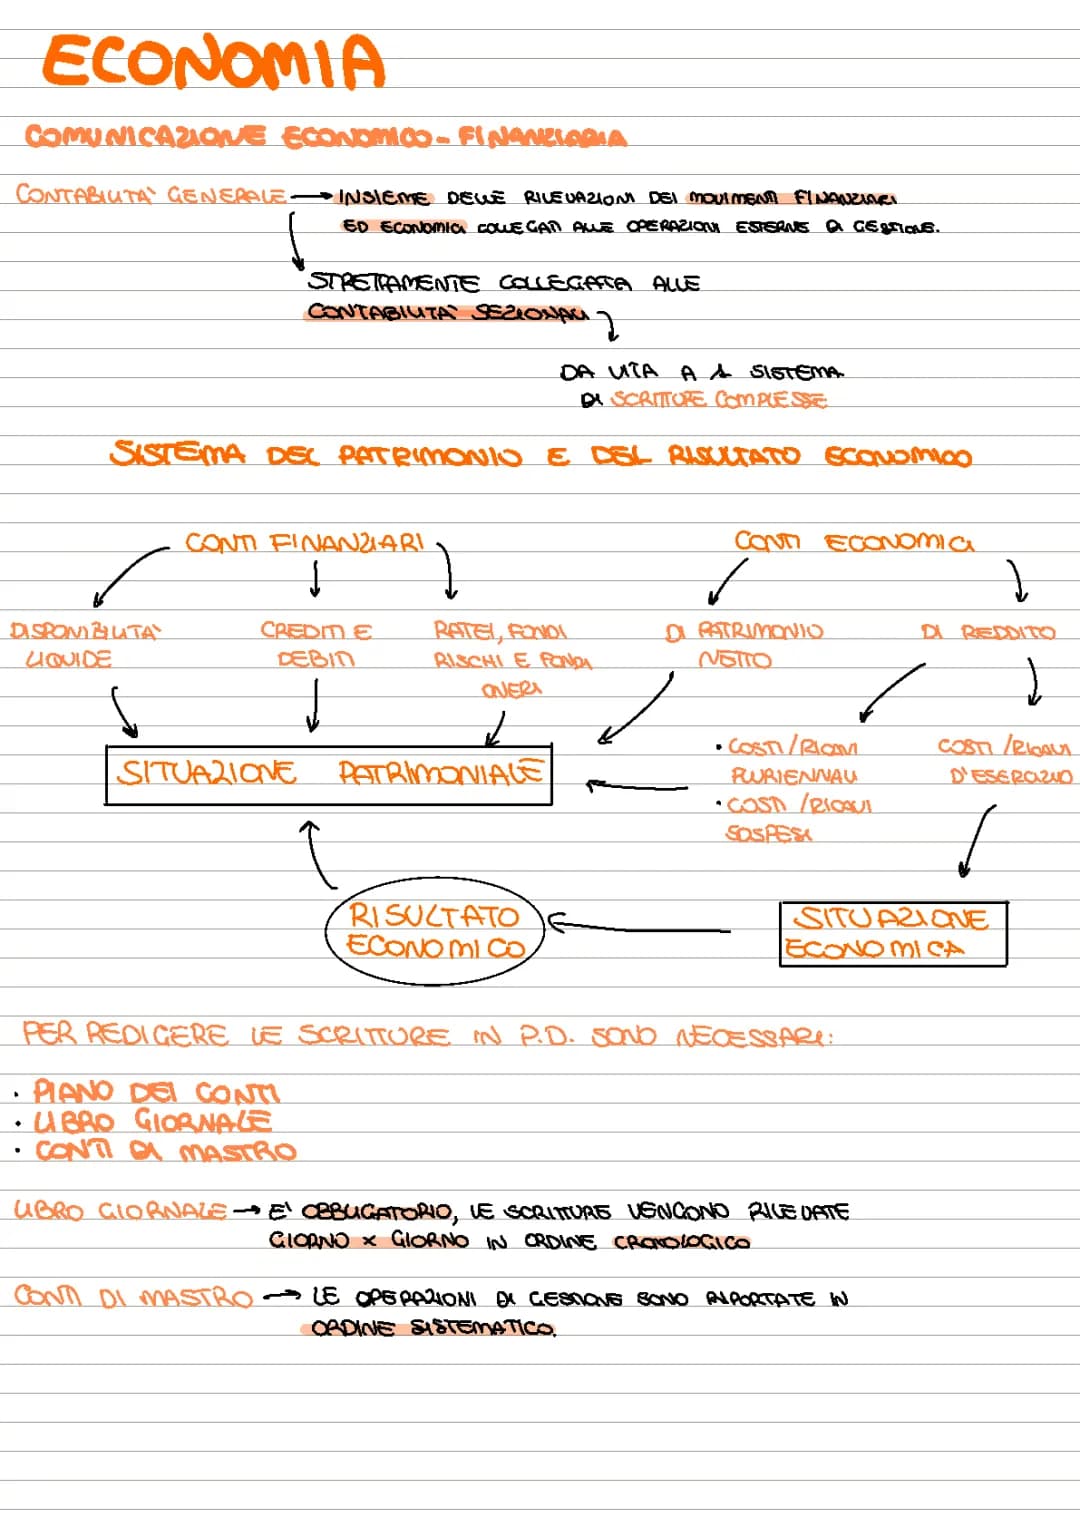 ECONOMIA
COMUNICAZIONE ECONOMICO-FINANZIARIA
CONTABILITA' GENERALE → INSIEME DELLE RILEVAZIONI DEI MOVIMENTI FINANZIARI
ED ECONOMICI COLLEGATI ALLE OPERAZIONI ESTERNE DI GESTIONE.
STRETTAMENTE COLLEGATA ALLE
CONTABILITA' SEZIONALI
DA VITA A 1 SISTEMA
DI SCRITTURE COMPLESSE
SISTEMA DEL PATRIMONIO E DEL RISULTATO ECONOMICO
CONTI FINANZIARI
CONTI ECONOMICI
DISPONIBILITA'
LIQUIDE
CREDITI E
DEBITI
RATEI, FONDI
RISCHI E FONDI
ONERI
DI PATRIMONIO
NETTO
DI REDDITO
SITUAZIONE PATRIMONIALE
• COSTI/RICAVI
PLURIENNALI
• COSTI/RICAVI
SOSPESI
COSTI/RICAVI
D'ESERCIZIO
RISULTATO
ECONOMICO
SITUAZIONE
ECONOMICA
PER REDIGERE LE SCRITTURE IN P.D. SONO NECESSARI:
• PIANO DEI CONTI
• LIBRO GIORNALE
• CONTI DI MASTRO
LIBRO GIORNALE → E' OBBLIGATORIO, LE SCRITTURE VENGONO RILEVATE
GIORNO x GIORNO IN ORDINE CRONOLOGICO
CONTI DI MASTRO → LE OPERAZIONI DI GESTIONE SONO RIPORTATE IN
ORDINE SISTEMATICO.